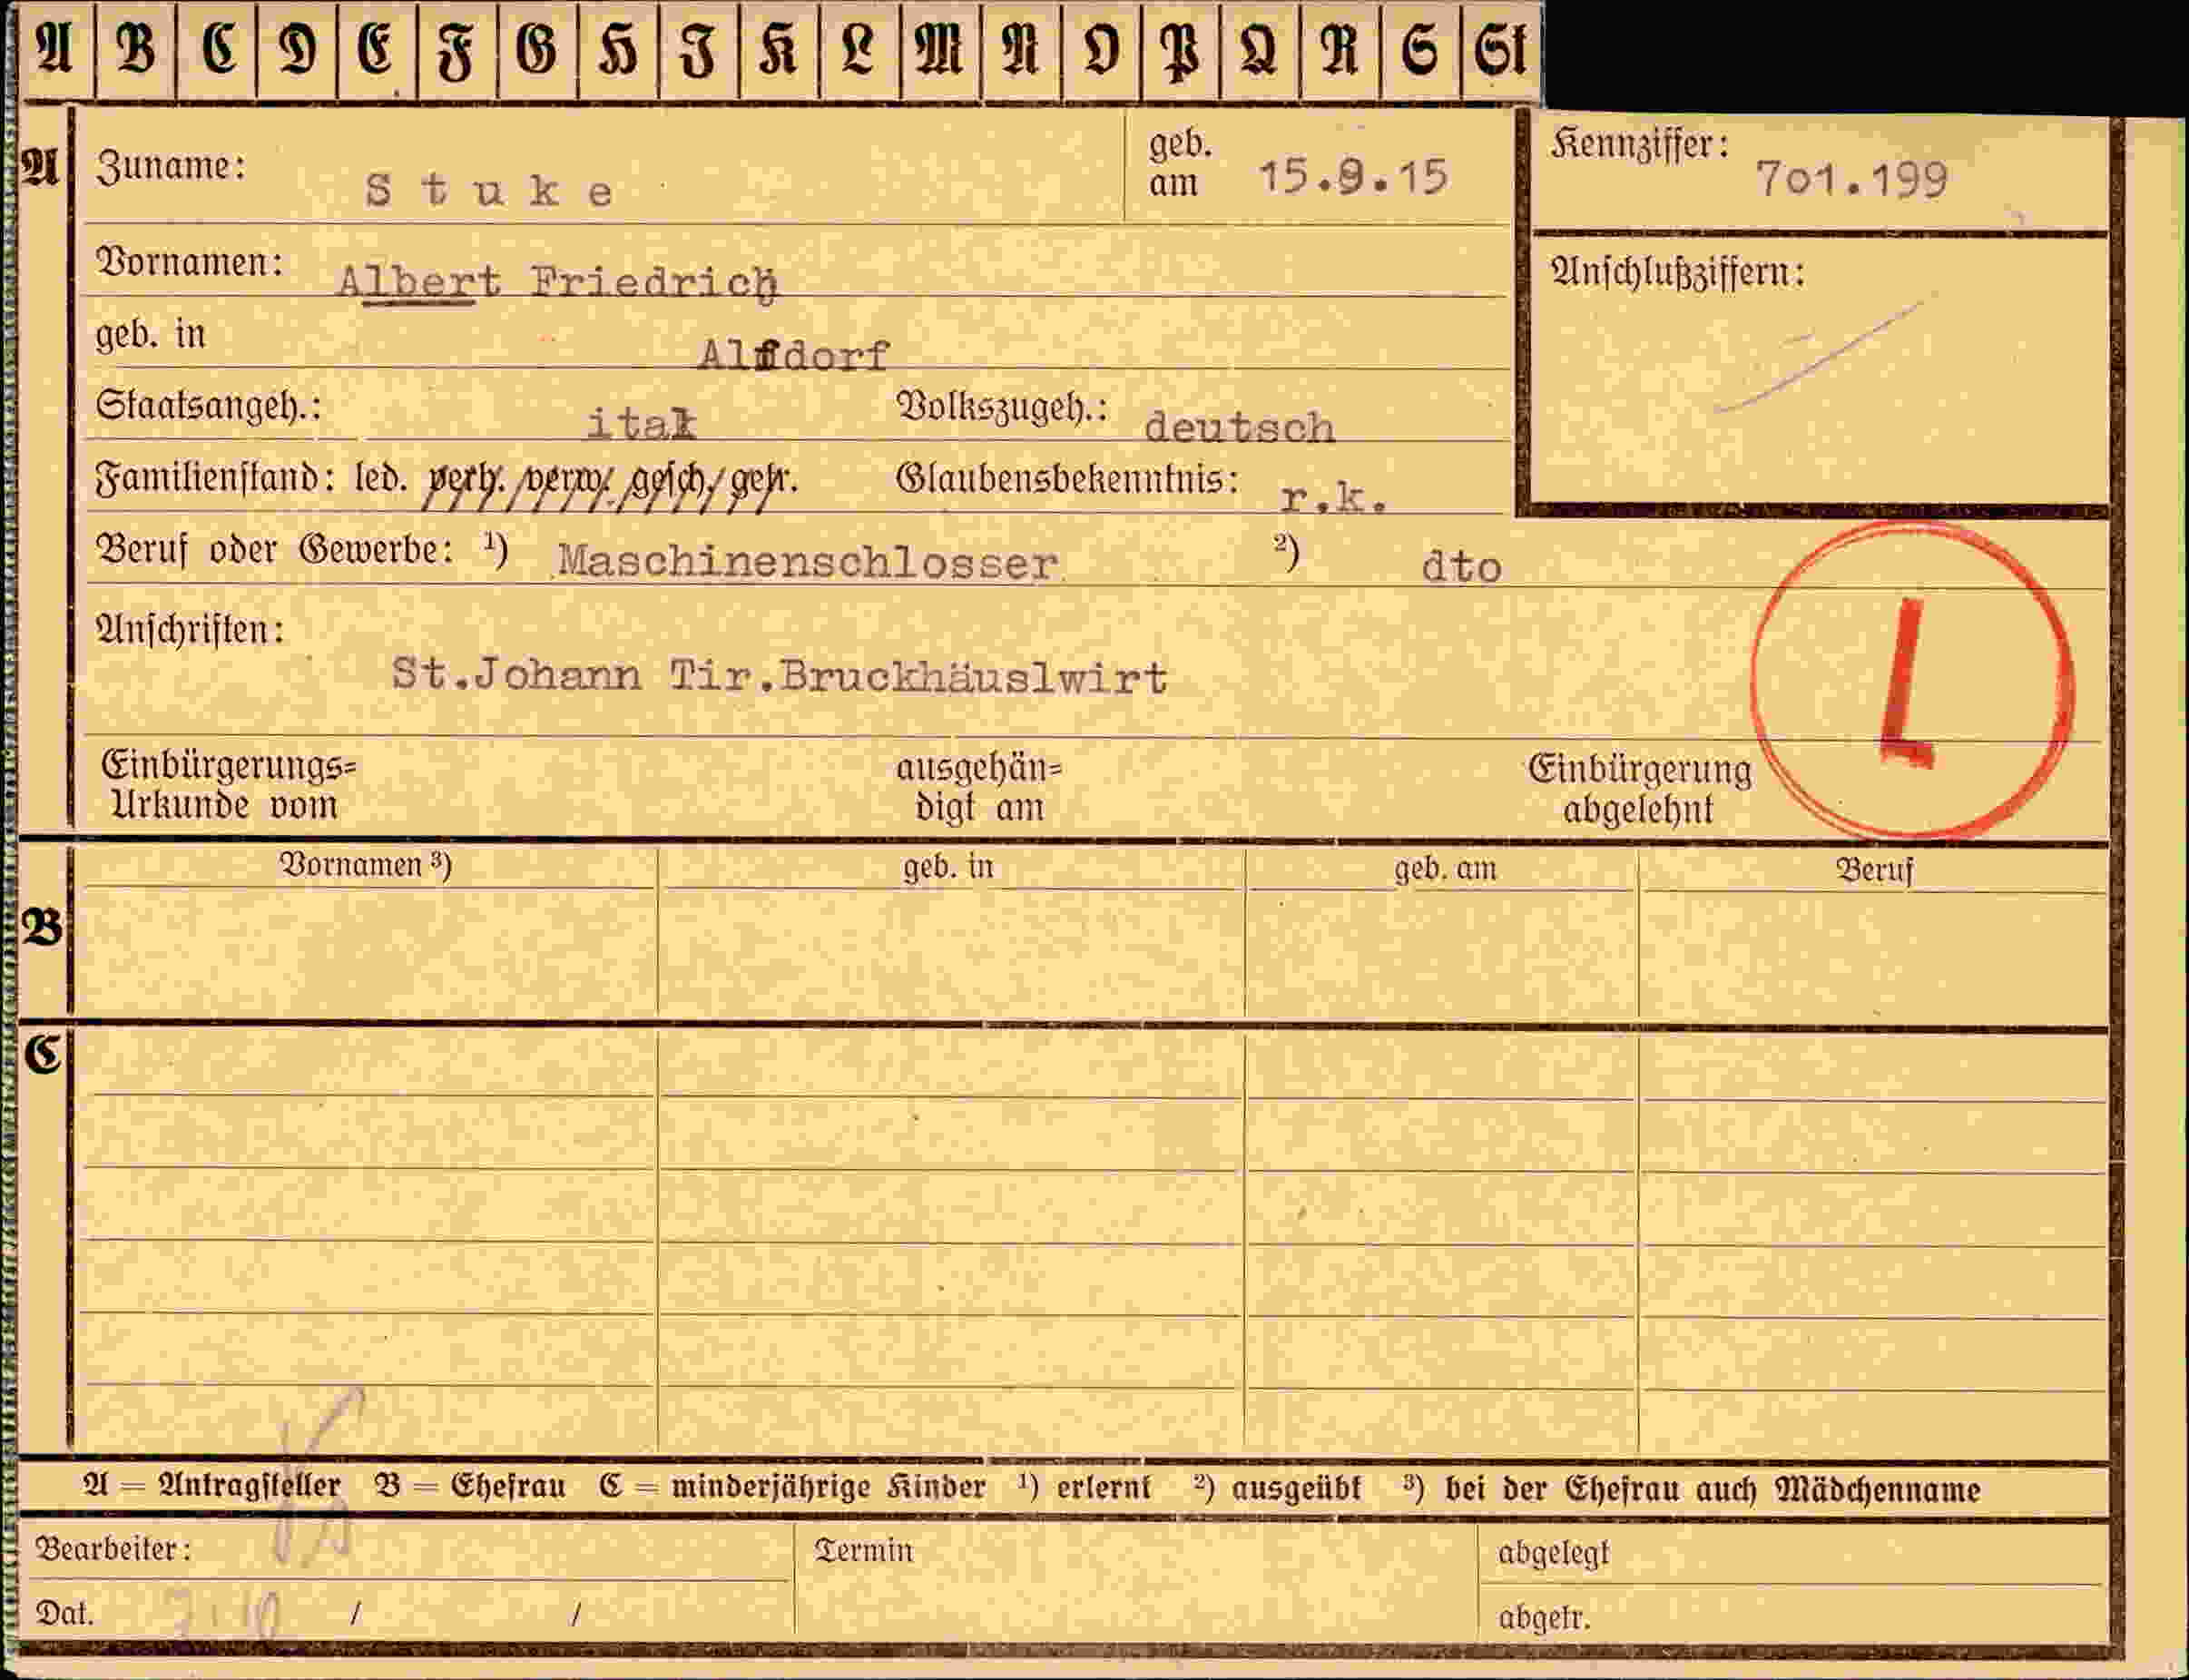 A B C D E F G H I K L M N O P Q R S St
A Zuname: Stuke geb. am 15.9.15 Kennziffer: 7o1.199
Vornamen: Albert Friedrich Anschlußziffern:
geb. in Alfdorf
Staatsangeh.: ital Volkszugeh.: deutsch
Familienstand: led. verh. verw. gesch. getr. Glaubensbekenntnis: r.k.
Beruf oder Gewerbe: ¹) Maschinenschlosser ²) dto
Anschriften:
St.Johann Tir.Bruckhäuslwirt
L
Einbürgerungs= ausgehän= Einbürgerung
Urkunde vom digt am abgelehnt
B Vornamen ³) geb. in geb. am Beruf
C
A = Antragsteller B = Ehefrau C = minderjährige Kinder ¹) erlernt ²) ausgeübt ³) bei der Ehefrau auch Mädchenname
Bearbeiter: Termin abgelegt
Dat. / / abgetr.